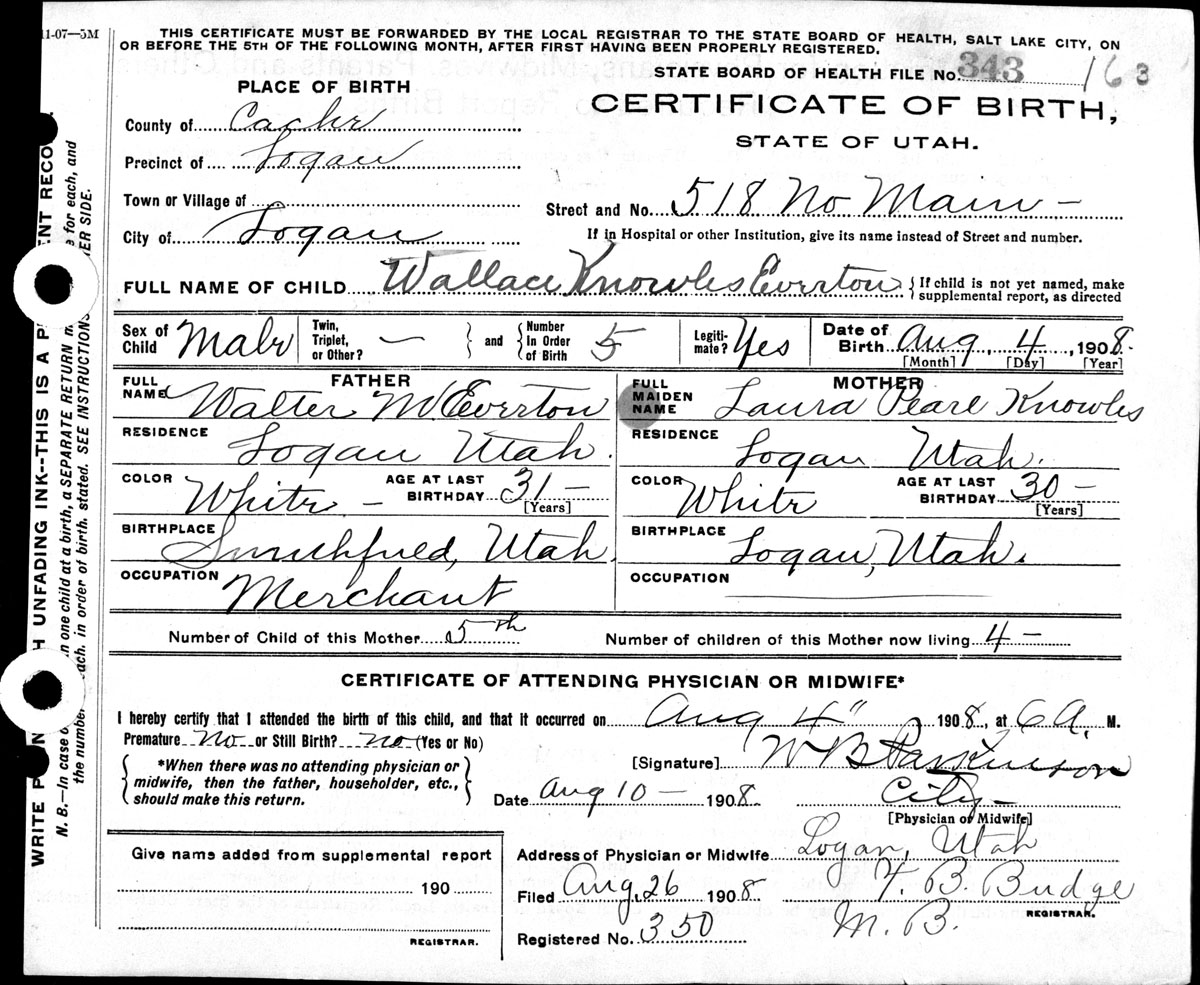 11-07—5M
THIS CERTIFICATE MUST BE FORWARDED BY THE LOCAL REGISTRAR TO THE STATE BOARD OF HEALTH, SALT LAKE CITY, ON
OR BEFORE THE 5TH OF THE FOLLOWING MONTH, AFTER FIRST HAVING BEEN PROPERLY REGISTERED.
STATE BOARD OF HEALTH FILE No. 343 163
PLACE OF BIRTH
CERTIFICATE OF BIRTH,
STATE OF UTAH.
County of Cache
Precinct of Logan
Town or Village of
Street and No. 518 No Main –
City of Logan
If in Hospital or other Institution, give its name instead of Street and number.
FULL NAME OF CHILD Wallace Knowles Everton
{If child is not yet named, make
supplemental report, as directed
Sex of Child Male
Twin, Triplet, or Other? —
} and {
Number In Order of Birth 5
Legiti-mate? Yes
Date of Birth Aug, 4, 1908.
[Month] [Day] [Year]
FATHER
FULL NAME Walter M Everton
RESIDENCE Logan Utah.
COLOR White –
AGE AT LAST BIRTHDAY 31 –
[Years]
BIRTHPLACE Smithfield, Utah.
OCCUPATION Merchant
MOTHER
FULL MAIDEN NAME Laura Pearl Knowles
RESIDENCE Logan Utah.
COLOR White
AGE AT LAST BIRTHDAY 30 –
[Years]
BIRTHPLACE Logan, Utah.
OCCUPATION
Number of Child of this Mother 5th
Number of children of this Mother now living 4 –
CERTIFICATE OF ATTENDING PHYSICIAN OR MIDWIFE*
I hereby certify that I attended the birth of this child, and that it occurred on Aug 4" 1908, at 6 A. M.
Premature No or Still Birth? no (Yes or No)
{*When there was no attending physician or
midwife, then the father, householder, etc.,
should make this return.}
[Signature] W B Parkinson
Date Aug 10 – 1908.
City –
[Physician or Midwife]
Give name added from supplemental report
190
REGISTRAR.
Address of Physician or Midwife Logan, Utah
Filed Aug, 26 1908
T. B. Budge
REGISTRAR.
M. B.
Registered No. 350
WRITE P H UNFADING INK--THIS IS A P ENT RECO
N. B.—In case o n one child at a birth, a SEPARATE RETURN m e for each, and
the number ach. in order of birth. stated. SEE INSTRUCTIONS ER SIDE.